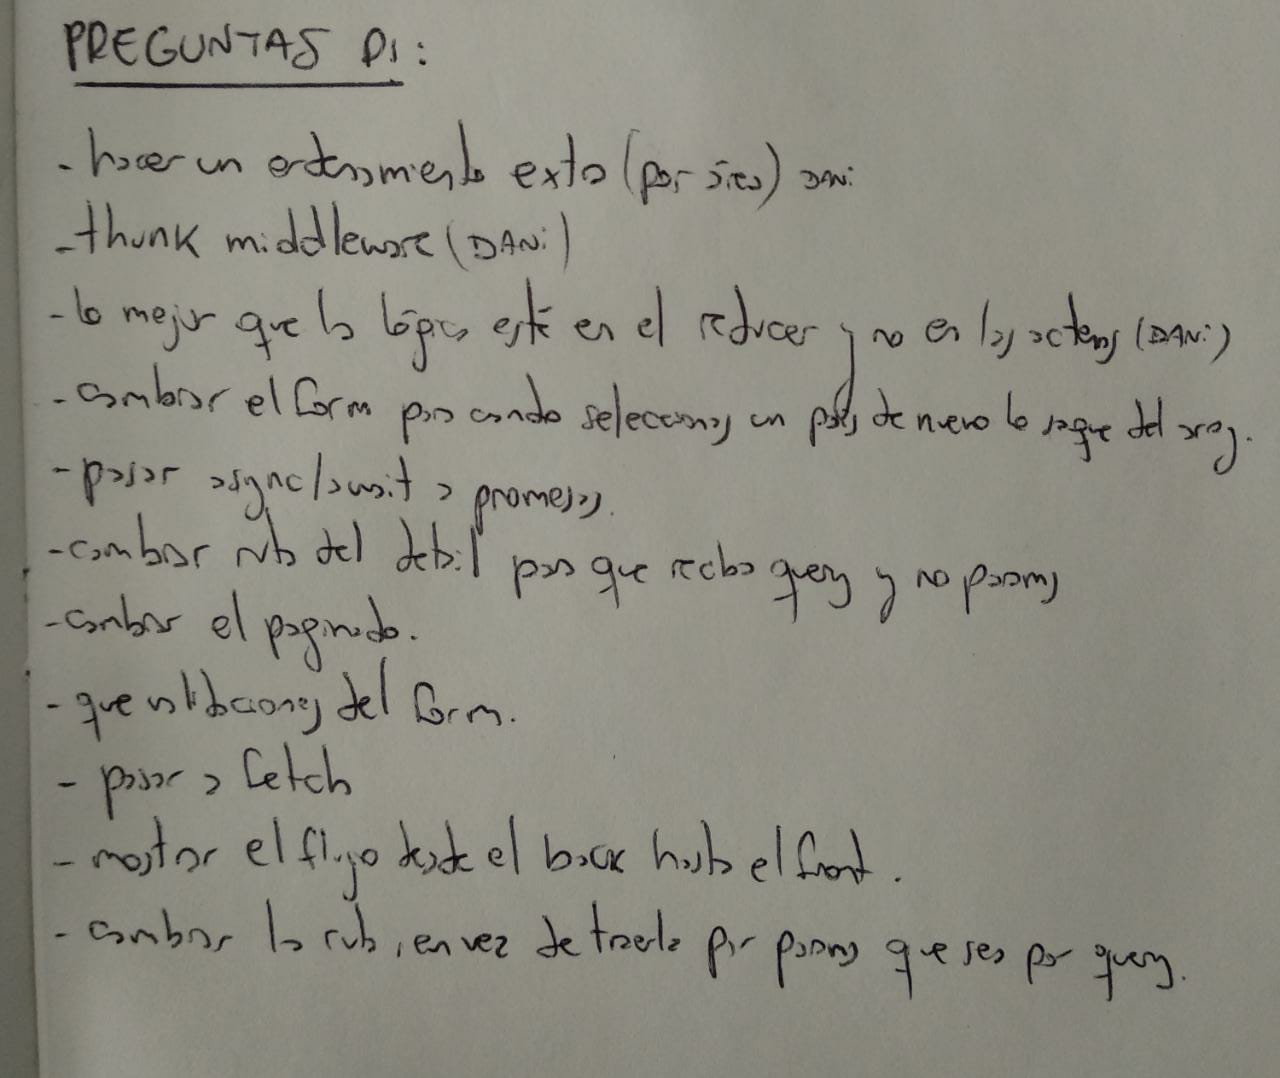 PREGUNTAS PI:
- hacer un ordenamiento extra (por área) DANi
- thunk middleware (DANi)
- lo mejor que la lógica esté en el reducer y no en las actions (DANi)
- cambiar el form para cuando seleccionas un país de nuevo lo saque del array.
- pasar async/await a promesas.
- cambiar ruta del detail para que reciba query y no params
- cambiar el paginado.
- que validaciones del form.
- pasar a fetch
- mostrar el flujo desde el back hasta el front.
- cambiar la ruta, en vez de traerla por params que sea por query.